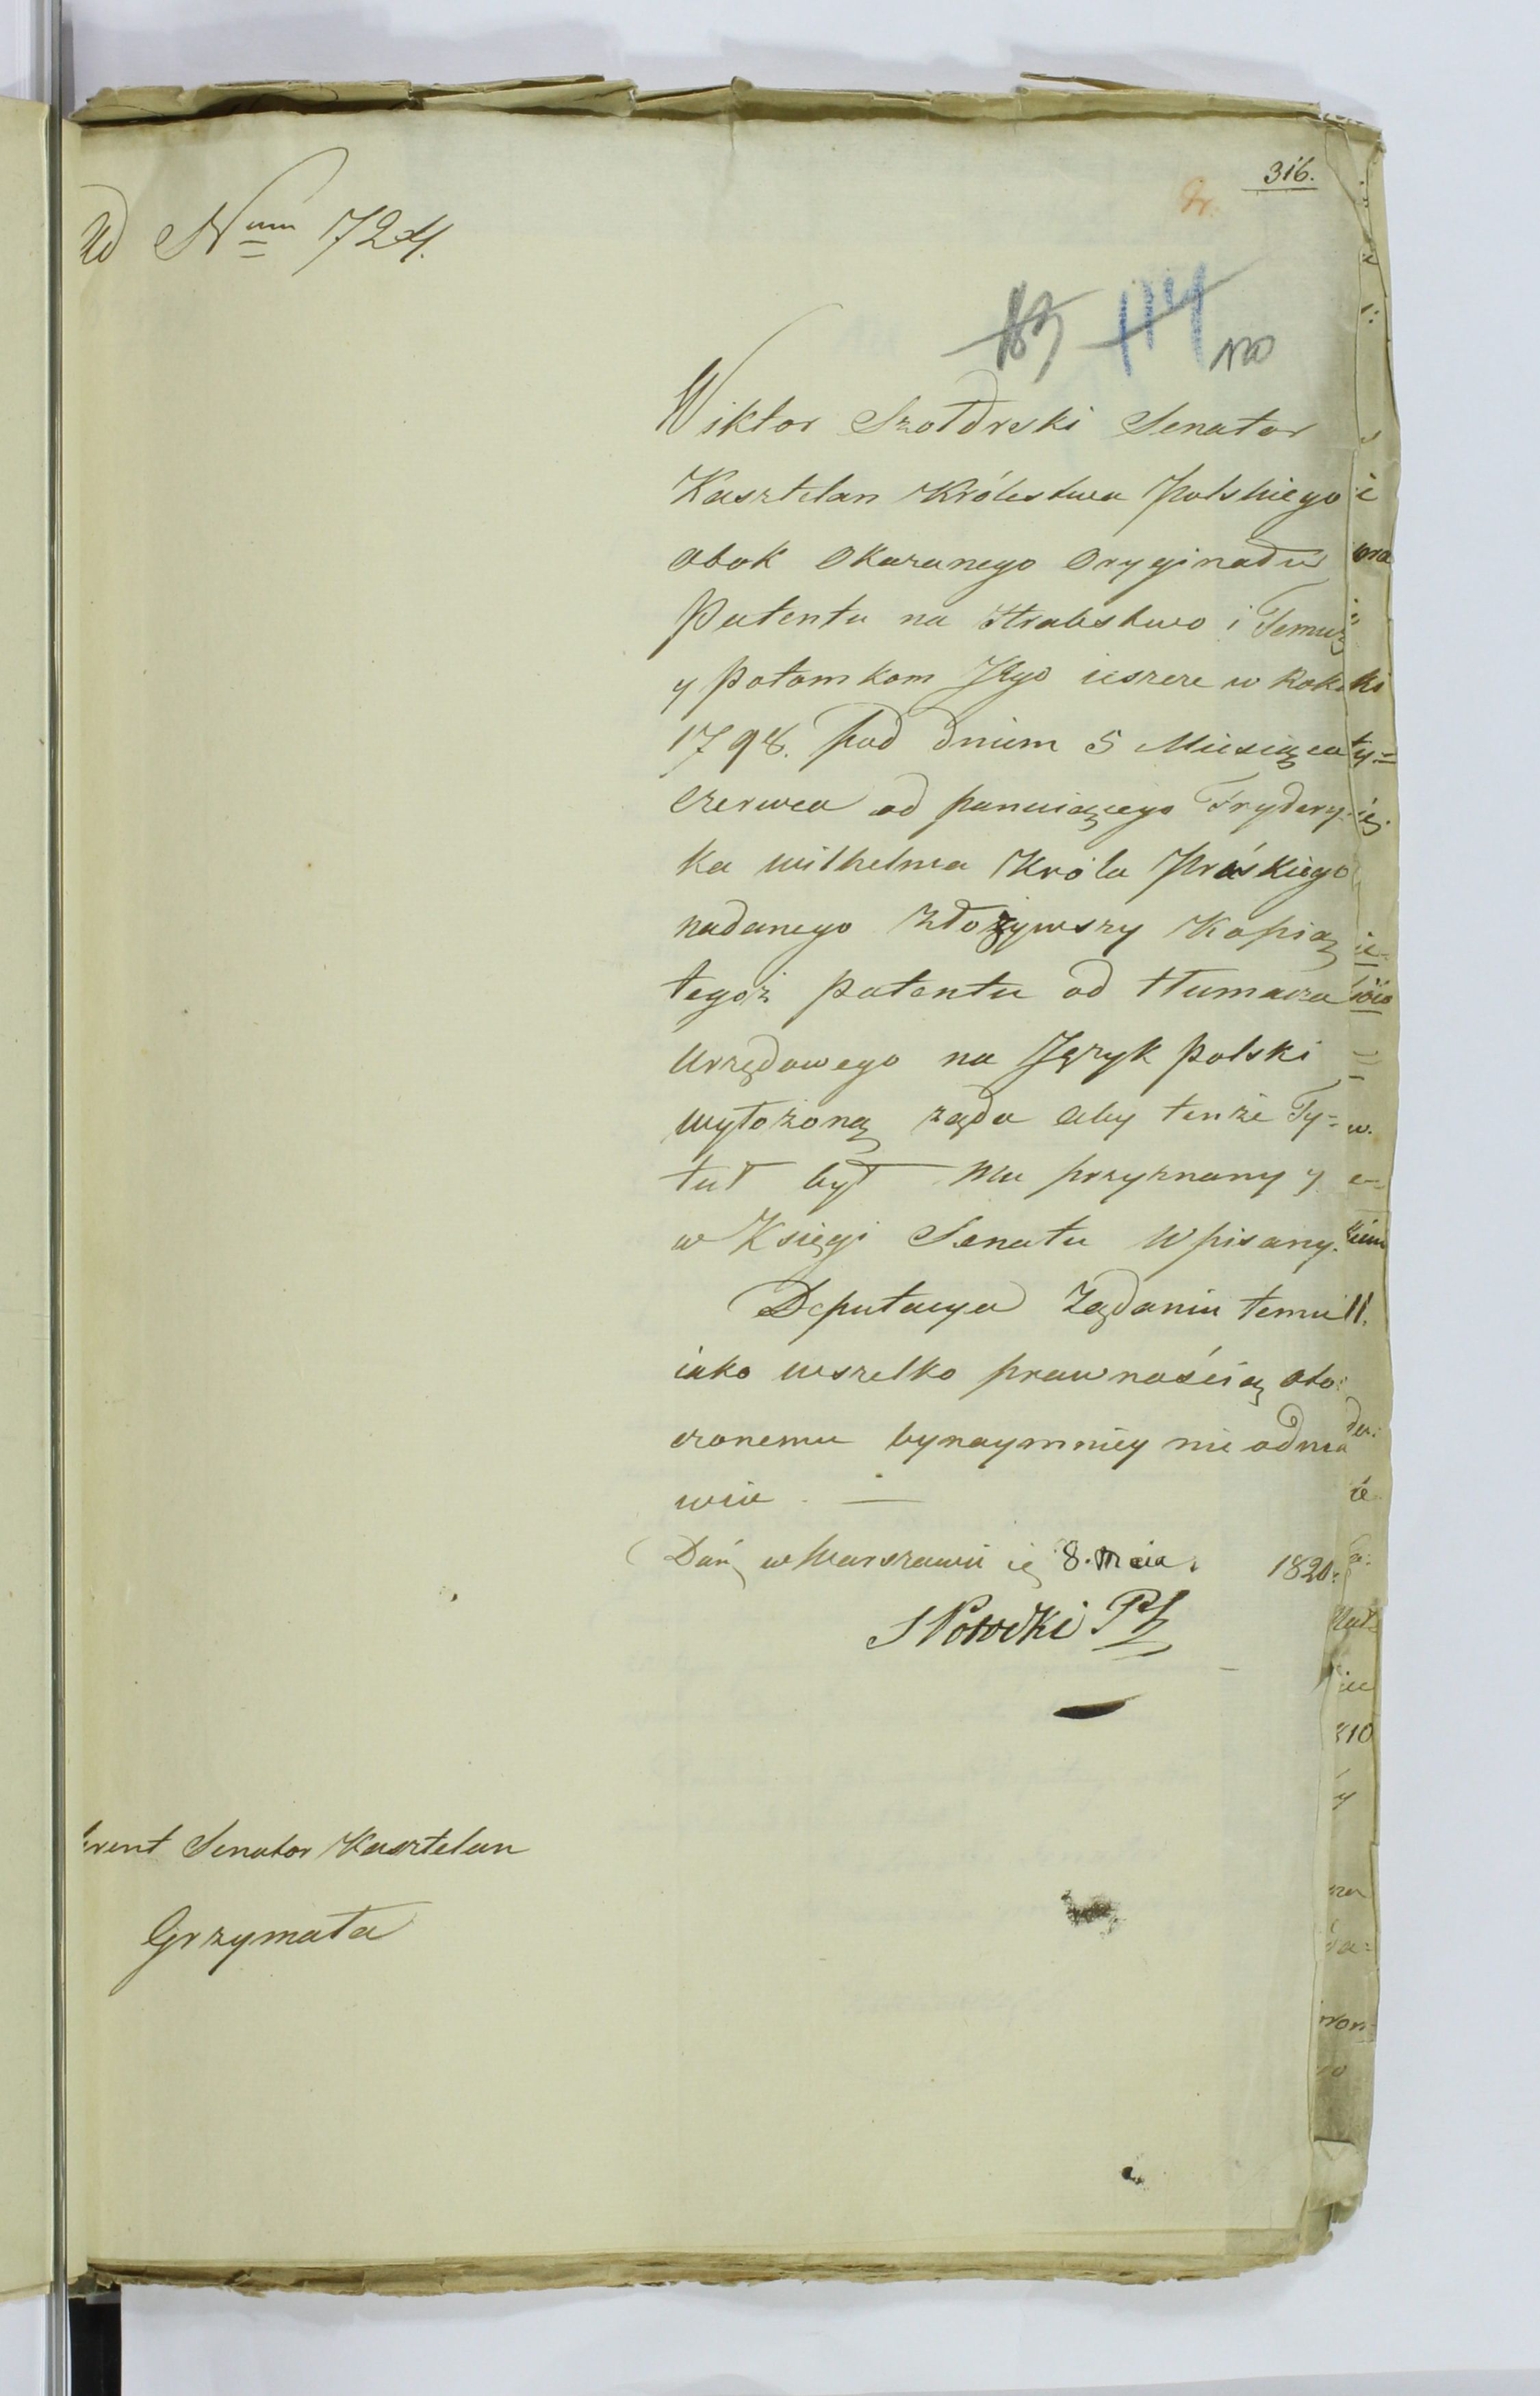 316.
Ad N<sup>rum</sup> 724.
83 114 120
Wiktor Szołdrski Senator
Kasztelan Królestwa Polskiego
obok okazanego Oryginału
Patentu na Hrabstwo i Temuż
y potomkom Jego ieszcze w Roku
1798. pod dniem 5 Miesiąca
Czerwca od panuiącego Frydery-
ka Wilhelma Króla Pruskiego
nadanego złożywszy Kopią
tegoż patentu od tłumacza
Urzędowego na Język polski
wyłożoną żąda aby tenże Ty=
tuł był Mu przyznany y
w Księgi Senatu Wpisany.
Deputacya Żądaniu temu
iako wszelko prawnością oto:
czonemu bynaymniey nie odma
wia. —
Dań w Warszawie 8. Maia. 1820.
S Potocki PS
erent Senator Kasztelan
Grzymała